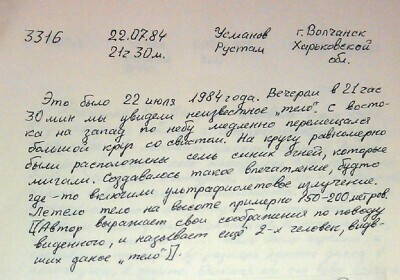 3316 22.07.84 Усманов г. Волчанск
21ч 30 м. Рустам Харьковской
обл.
Это было 22 июля 1984 года. Вечером в 21 час
30 мин мы увидели неизвестное „тело“. С восто-
ка на запад по небу медленно перемещался
большой круг со свистом. На кругу равномерно
были расположены семь синих огней, которые
мигали. Создавалось такое впечатление, будто
где-то включили ультрафиолетовое излучение.
Летело тело на высоте примерно 150-200 метров.
[[Автор выражает свои соображения по поводу
виденного, и называет ещё 2-х человек, видев-
ших даное „тело“]].